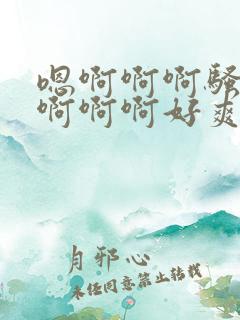 嗯啊啊啊骚
啊啊啊好爽
肖邪心
未经同意禁止转载